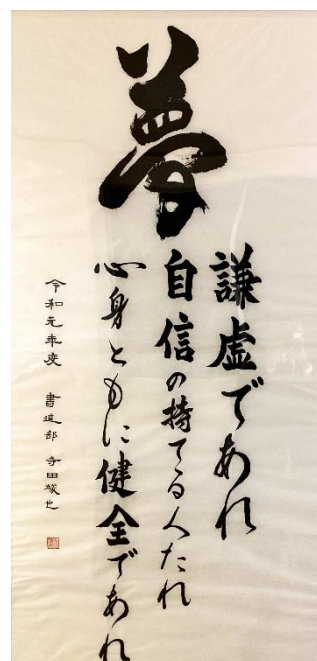 夢
謙虚であれ
自信の持てる人たれ
心身ともに健全であれ
令和元年度 書道部 寺田